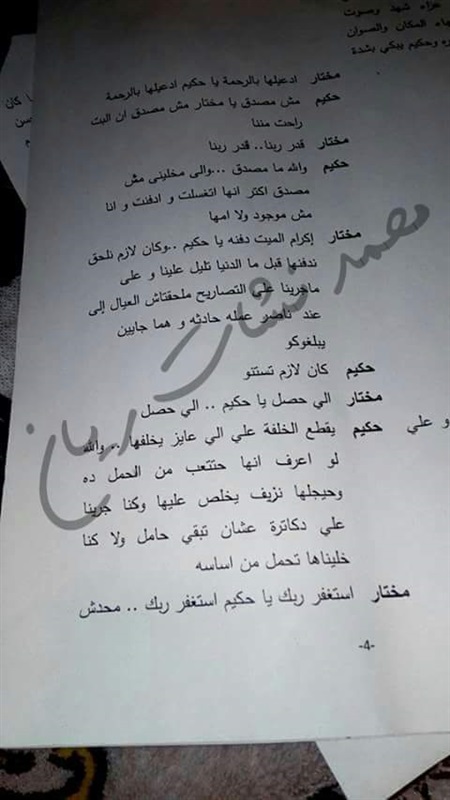 عزاء شهد وصوت
المكان والصوان
وحكيم يبكي بشدة
مختار ادعيلها بالرحمة يا حكيم ادعيلها بالرحمة
حكيم مش مصدق يا مختار مش مصدق ان البت
راحت مننا
مختار قدر ربنا.. قدر ربنا
حكيم والله ما مصدق ...والى مخلينى مش
مصدق اكتر انها اتغسلت و ادفنت و انا
مش موجود ولا امها
مختار إكرام الميت دفنه يا حكيم ..وكان لازم نلحق
ندفنها قبل ما الدنيا تليل علينا و على
ماجرينا علي التصاريح ملحقتاش العيال إلى
عند ناصر عمله حادثه و هما جايين
يبلغوكو
حكيم كان لازم تستنو
مختار الي حصل يا حكيم .. الي حصل
حكيم يقطع الخلفة علي الي عايز يخلفها .. والله
لو اعرف انها حتتعب من الحمل ده
وحيجلها نزيف يخلص عليها وكنا جرينا
علي دكاترة عشان تبقي حامل ولا كنا
خليناها تحمل من اساسه
مختار استغفر ربك يا حكيم استغفر ربك .. محدش
-4-
و علي
يا كان
محمد نشات